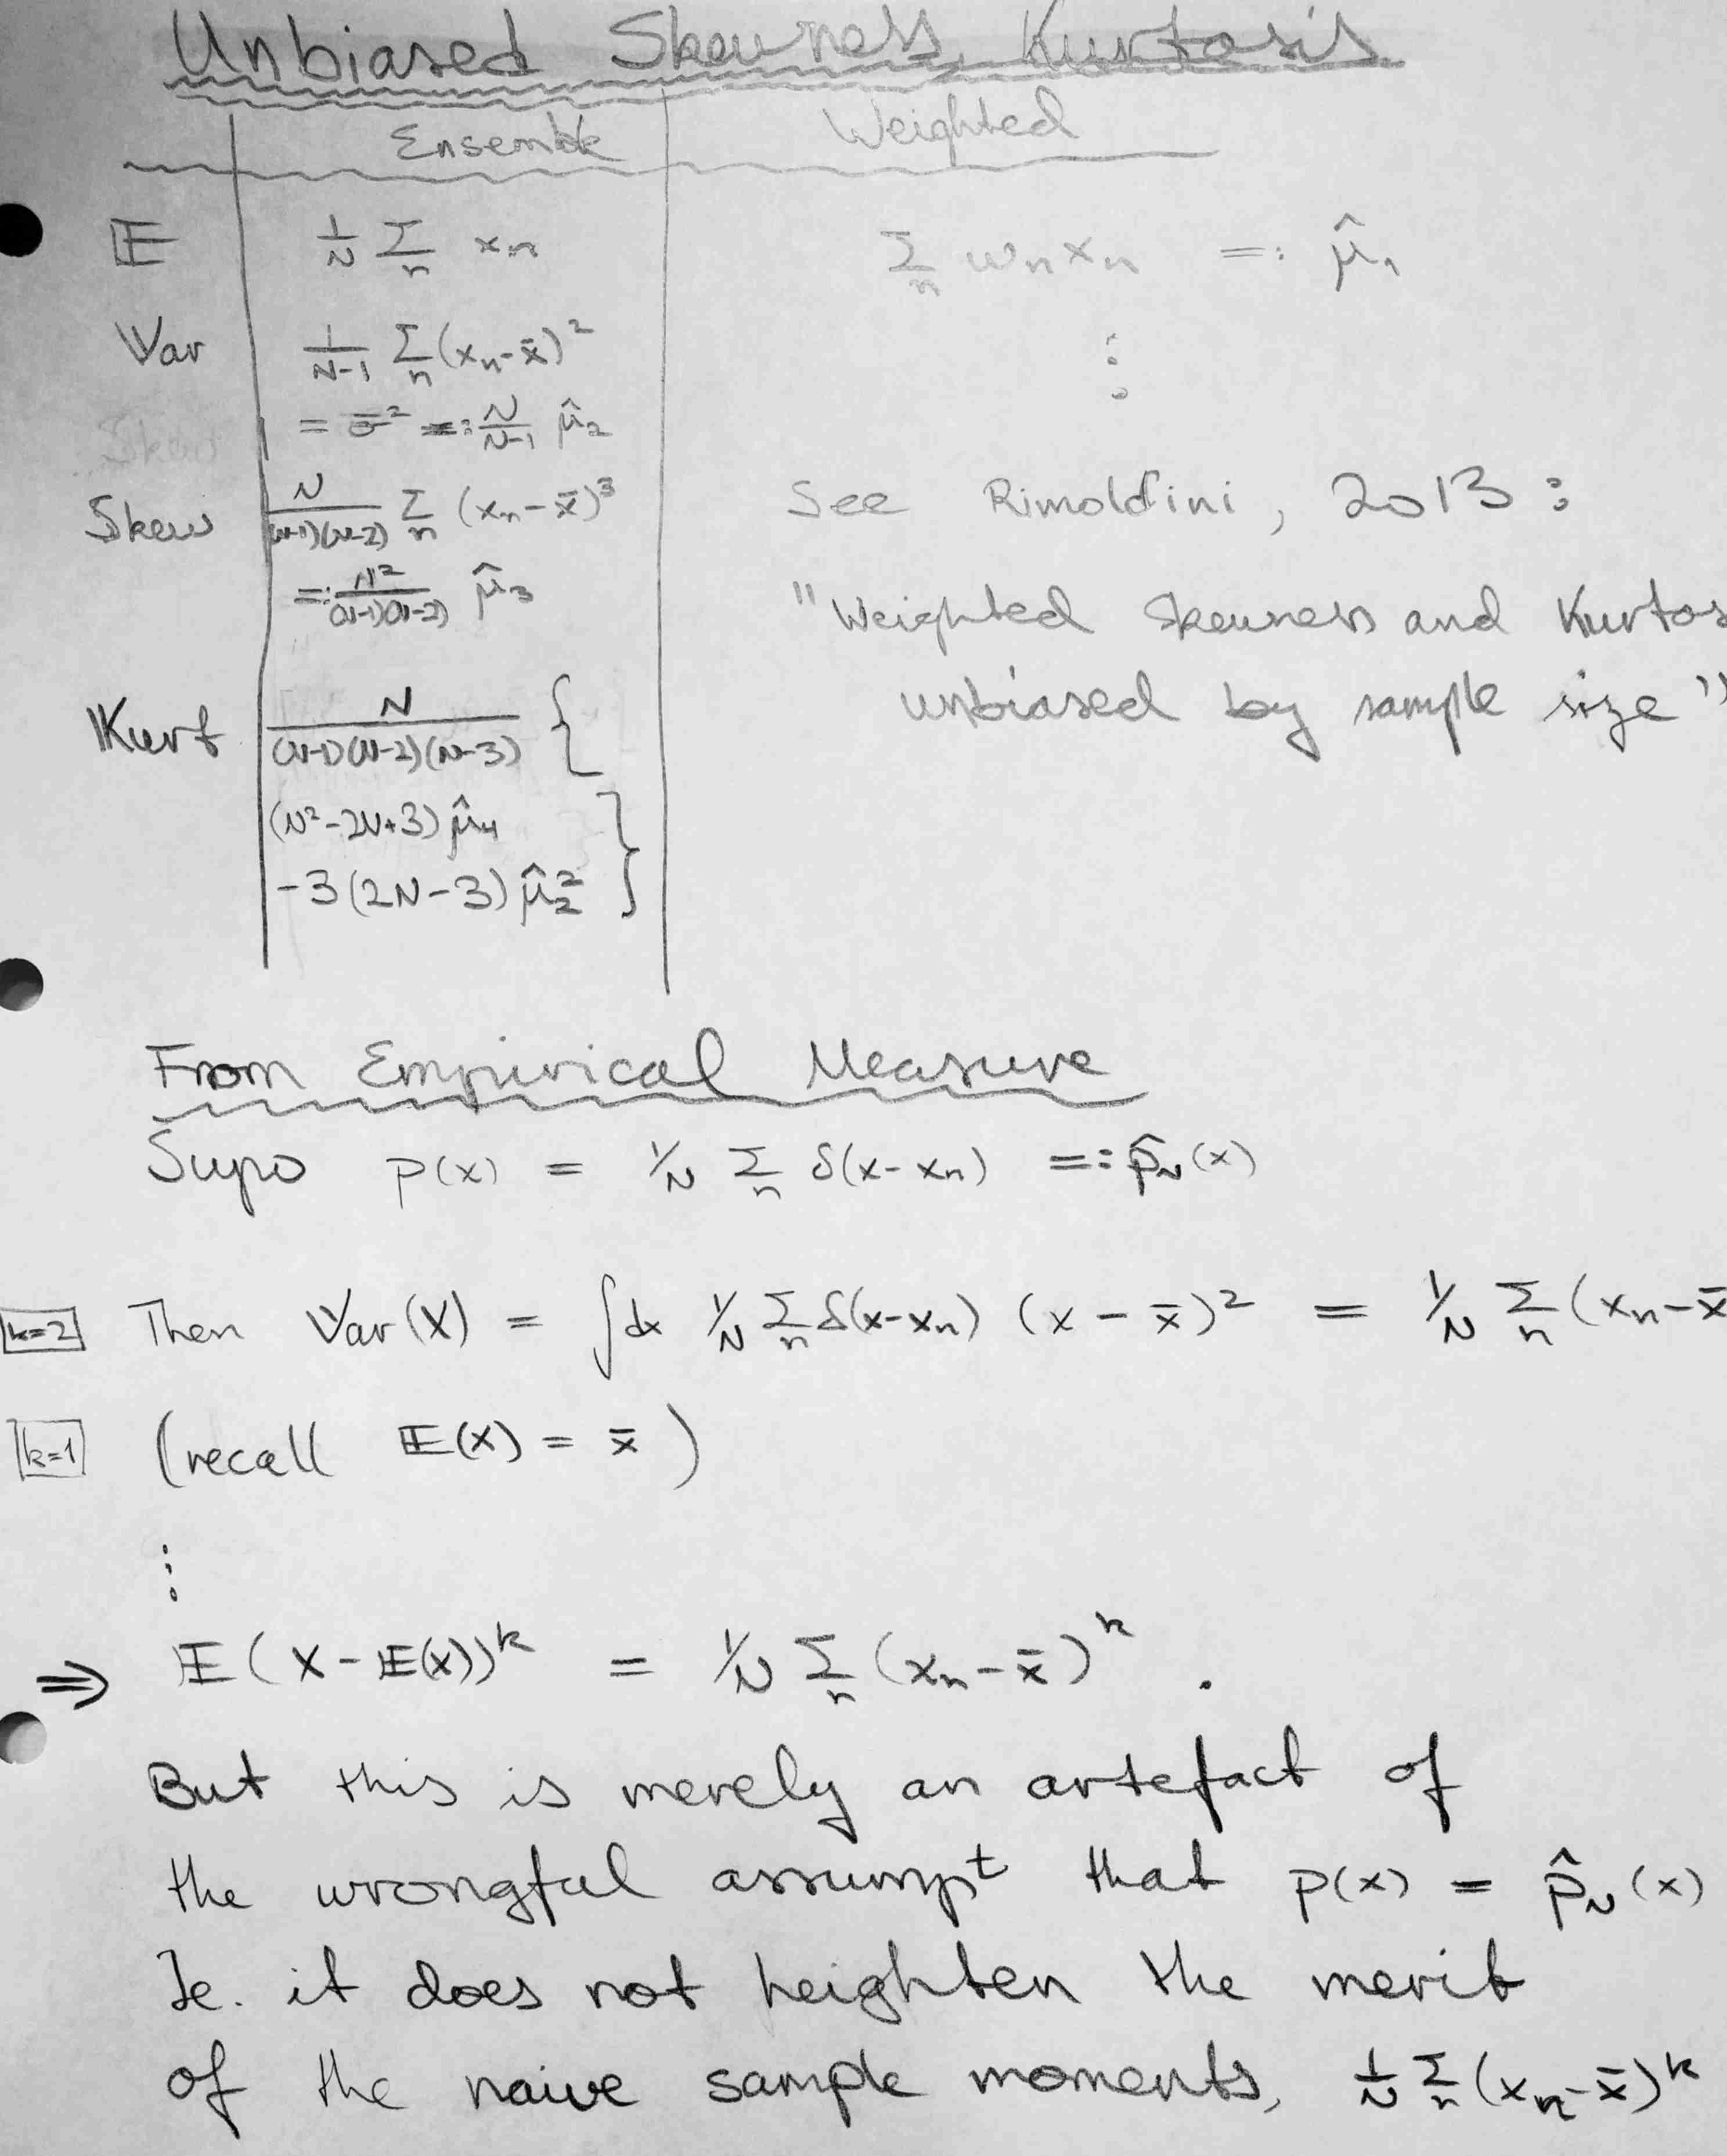 Unbiased Skewness, Kurtosis
Ensemble Weighted
𝔼 1/N Σ_n x_n Σ_n w_n x_n =: μ̂_1
Var 1/(N-1) Σ_n (x_n - x̄)^2 ⋮
= σ̄^2 =: N/(N-1) μ̂_2
Skew
Skew N/((N-1)(N-2)) Σ_n (x_n - x̄)^3 See Rimoldini, 2013:
=: N^2/((N-1)(N-2)) μ̂_3 "Weighted Skewness and Kurtos
Kurt N/((N-1)(N-2)(N-3)) { unbiased by sample size"
(N^2 - 2N + 3) μ̂_4
- 3(2N - 3) μ̂_2^2 }
From Empirical Measure
Supo p(x) = 1/N Σ_n δ(x - x_n) =: p̂_N(x)
k=2 Then Var(X) = ∫dx 1/N Σ_n δ(x - x_n) (x - x̄)^2 = 1/N Σ_n (x_n - x̄
k=1 (recall 𝔼(X) = x̄)
⋮
⇒ 𝔼(X - 𝔼(X))^k = 1/N Σ_n (x_n - x̄)^k .
But this is merely an artefact of
the wrongful assumpt that p(x) = p̂_N(x)
Ie. it does not heighten the merit
of the naive sample moments, 1/N Σ_n (x_n - x̄)^k